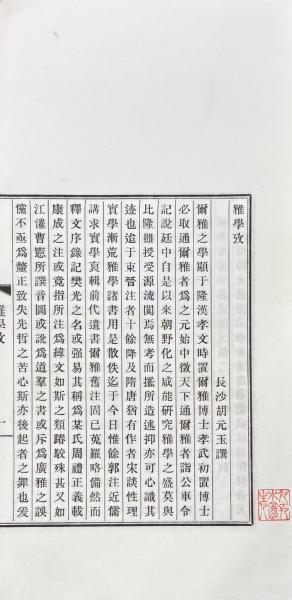 雅學攷
長沙胡元玉譔
爾雅之學顯于隆漢孝文時置爾雅博士孝武初置博士
必取通爾雅者爲之元始中徵天下通爾雅者詣公車令
記說廷中自是以來朝野化之咸能研究雅學之盛莫與
比隆雖授受源流闕焉無考而攬所造述抑亦可心識其
迹也逌于東晉注者十餘隆及隋唐猶有作者宋談性理
實學漸荒雅學諸書用是散佚迄于今日惟餘郭注近儒
講求實學裒輯前代遺書爾雅舊注固已蒐羅略備然而
釋文序錄記樊光之名或强易其稱爲某氏周禮正義載
康成之注或竟指所注爲緯文如斯之類踳駮殊甚又如
江灌曹憲所譔音圖或訛爲道羣之書或斥爲廣雅之誤
儻不亟爲釐正致失先哲之苦心斯亦後起者之罪也爰
雅學攷
一